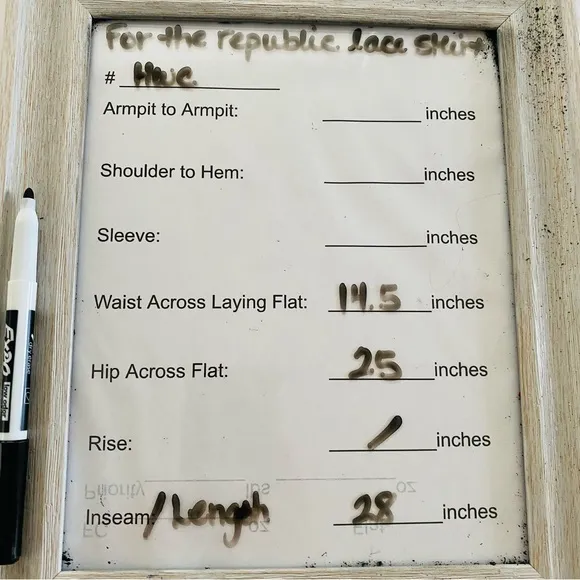 For the republic lace skirt
# Hwc
Armpit to Armpit: ____ inches
Shoulder to Hem: ____ inches
Sleeve: ____ inches
Waist Across Laying Flat: 14.5 inches
Hip Across Flat: 25 inches
Rise: / inches
Priority ____ lbs ____ oz
Inseam: / Length 28 inches
FC oz Flat
EXPO
low odor